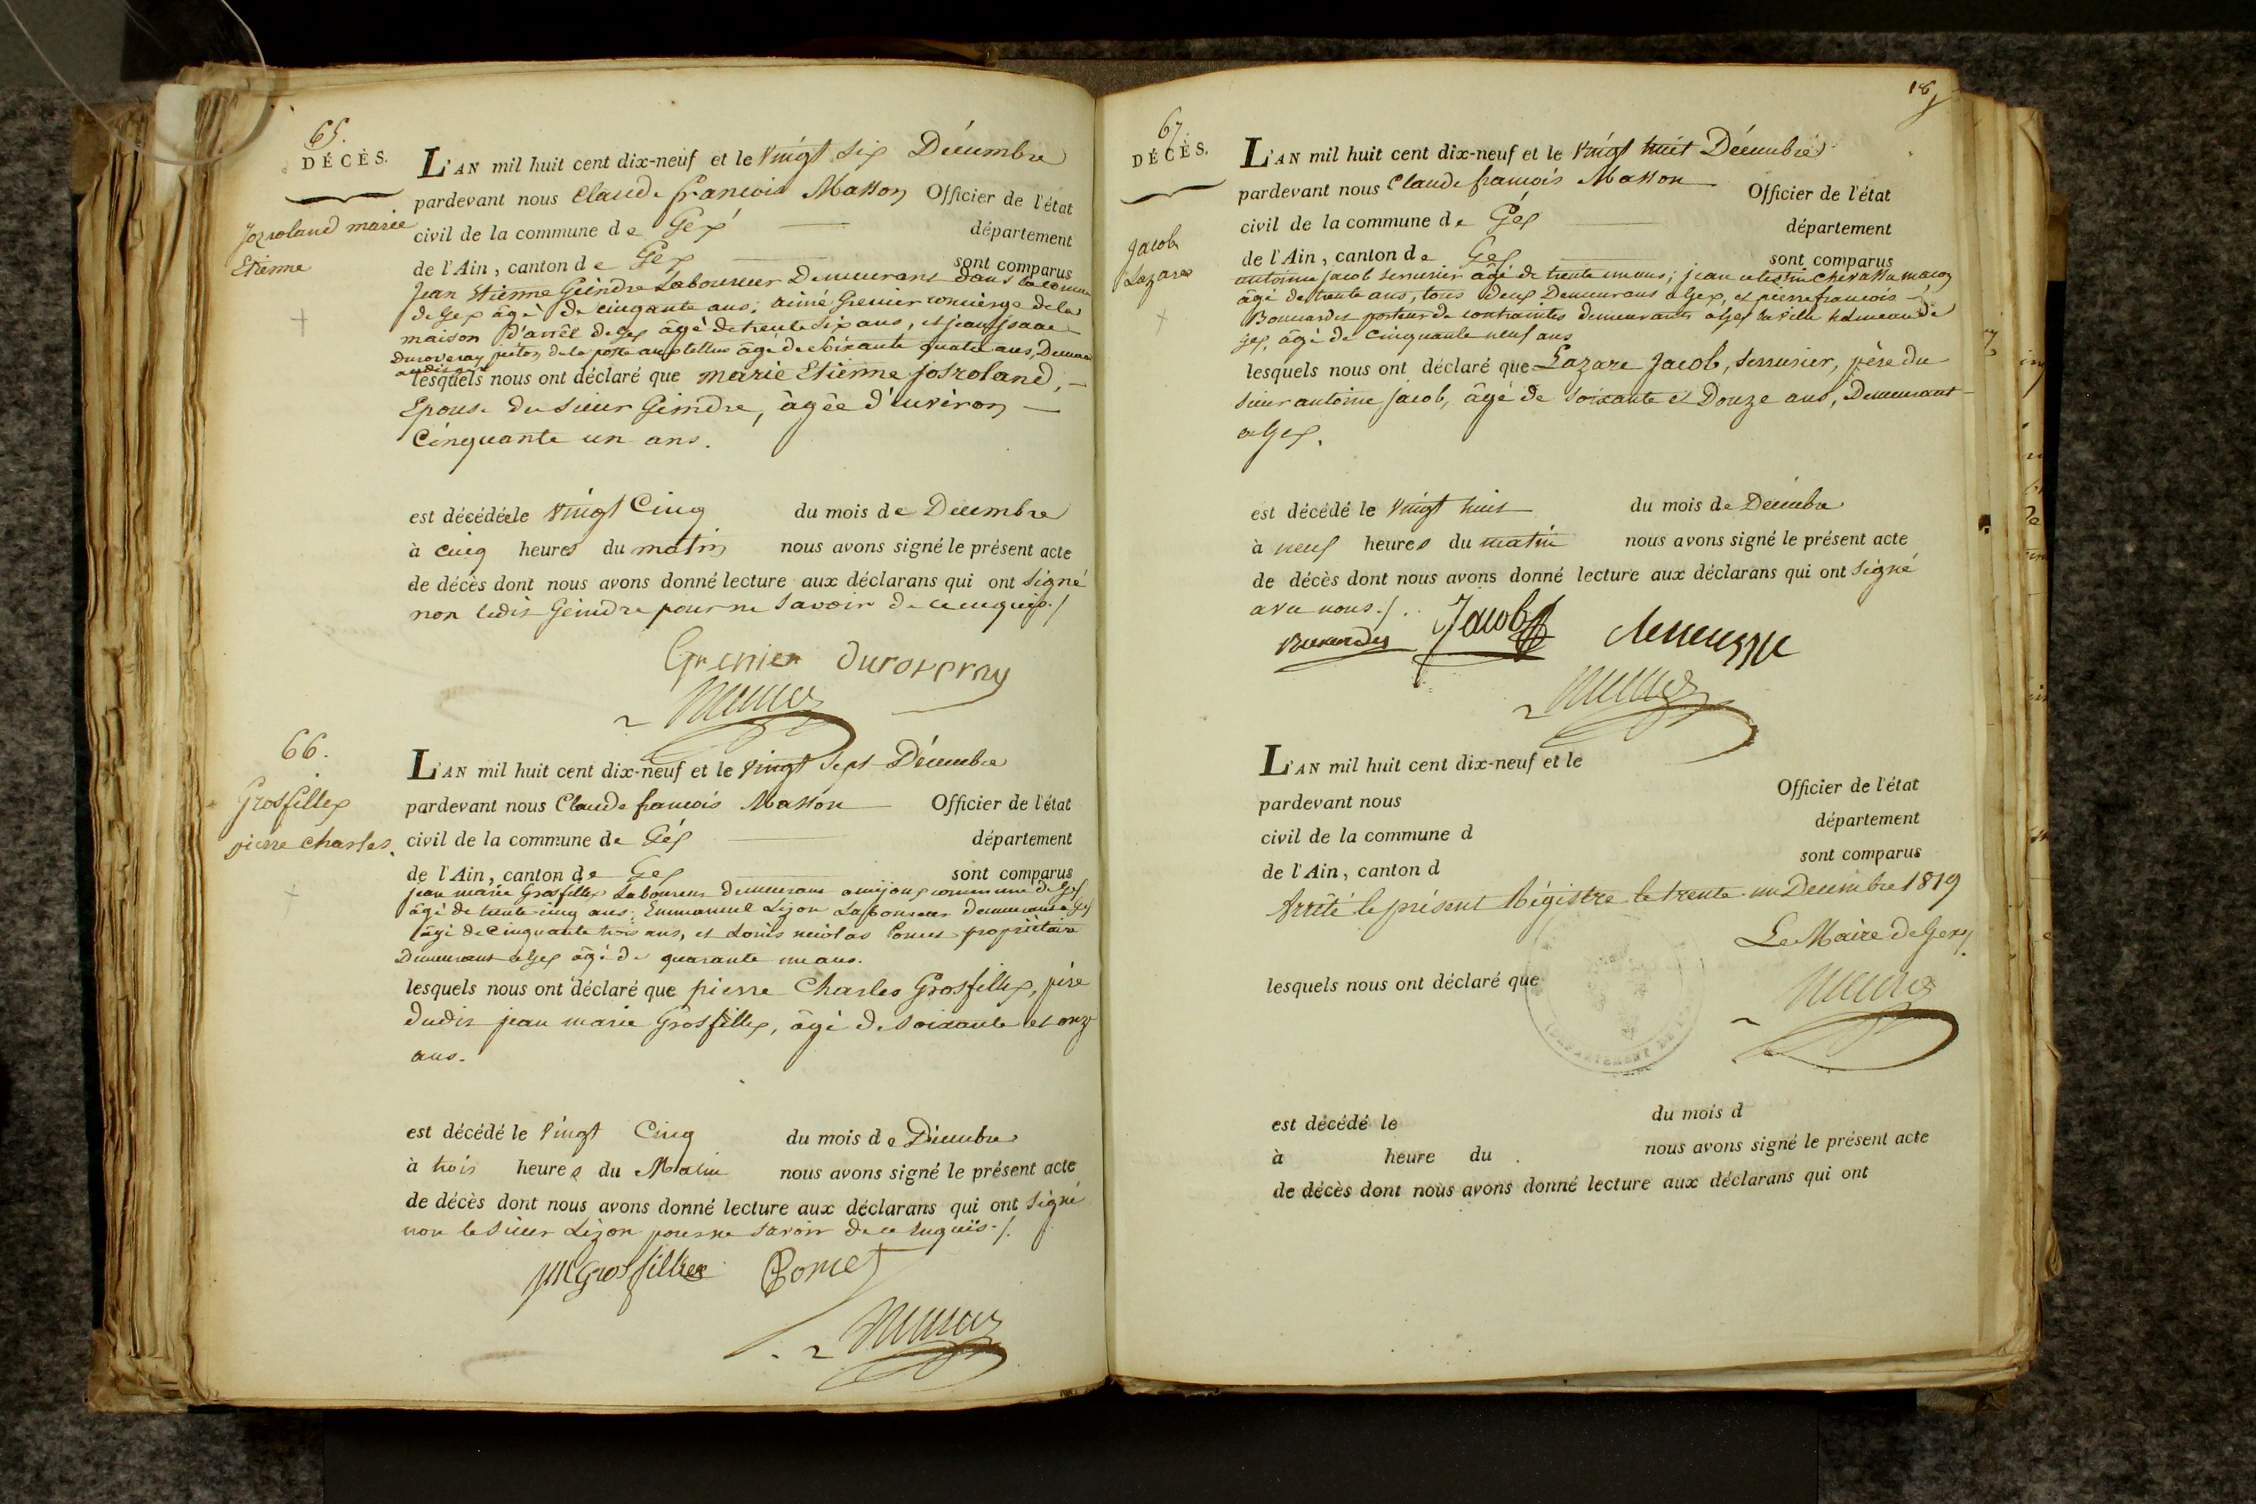 65.
DÉCÈS.
Jozroland marie
Etienne
L'AN mil huit cent dix-neuf et le vingt six Décembre
pardevant nous Claude francois Masson Officier de l'état
civil de la commune de Gex département
de l'Ain, canton de Gex sont comparus
Jean Etienne Geindre Laboureur Demeurant dans la commune
de Gex âgé de cinquante ans; aimé Grenier concierge de la
maison d'arrêt de Gex âgé de trente six ans, et jean jsaac
Duroveray piéton de la poste aux lettres âgé de soixante quatre ans, Demeurant
audit Gex
lesquels nous ont déclaré que marie Etienne Josroland,
Epouse du sieur Geindre, âgée d'environ
Cinquante un ans.
est décédée le vingt Cinq du mois de Decembre
à cinq heures du matin nous avons signé le présent acte
de décès dont nous avons donné lecture aux déclarans qui ont signé
non ledit Geindre pour ne savoir de ce enquis./
Grenier Duroveray
66.
Grosfillex
pierre Charles.
L'AN mil huit cent dix-neuf et le vingt sept Décembre
pardevant nous Claude francois Masson Officier de l'état
civil de la commune de Géx département
de l'Ain, canton de Gex sont comparus
jean marie Grosfillex Laboureur demeurant commune de Gex
âgé de trente cinq ans; Emmanuel Lizon Laboureur demeurant a Gex
âgé de cinquante trois ans, et Louis nicolas Comet propriétaire
Demeurant a Gex âgé de quarante un ans.
lesquels nous ont déclaré que pierre Charles Grosfillex, père
dudit jean marie Grosfillex, âgé de soixante et onze
ans.
est décédé le vingt Cinq du mois de Décembre
à trois heures du Matin nous avons signé le présent acte
de décès dont nous avons donné lecture aux déclarans qui ont signé
non le sieur Lizon pour ne savoir de ce enquis./.
JM Grosfillex Comet
67.
DÉCÈS.
Jacob
Lazare
L'AN mil huit cent dix-neuf et le vingt huit Décembre
pardevant nous Claude francois Masson Officier de l'état
civil de la commune de Géx département
de l'Ain, canton de Gex sont comparus
antoine jacob serrurier âgé de trente un ans; jean celestin macon
âgé de trente ans, tous deux Demeurans a Gex, et pierre francois
Bonnardet porteur de contraintes demeurant a Gex la ville hameau de
Gex, âgé de cinquante neuf ans
lesquels nous ont déclaré que Lazare Jacob, serrurier, père du
sieur antoine jacob, âgé de soixante et Douze ans, Demeurant
a Gex.
est décédé le vingt huit du mois de Décembre
à neuf heures du matin nous avons signé le présent acte
de décès dont nous avons donné lecture aux déclarans qui ont signé
avec nous./.
Jacob
L'AN mil huit cent dix-neuf et le
pardevant nous Officier de l'état
civil de la commune d département
de l'Ain, canton d sont comparus
Arrêté le présent Régistre le trente un Decembre 1819
Le Maire de Gex,
lesquels nous ont déclaré que
est décédé le du mois d
à heure du nous avons signé le présent acte
de décès dont nous avons donné lecture aux déclarans qui ont